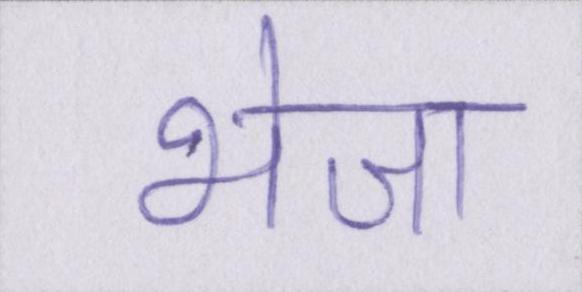 भेजा